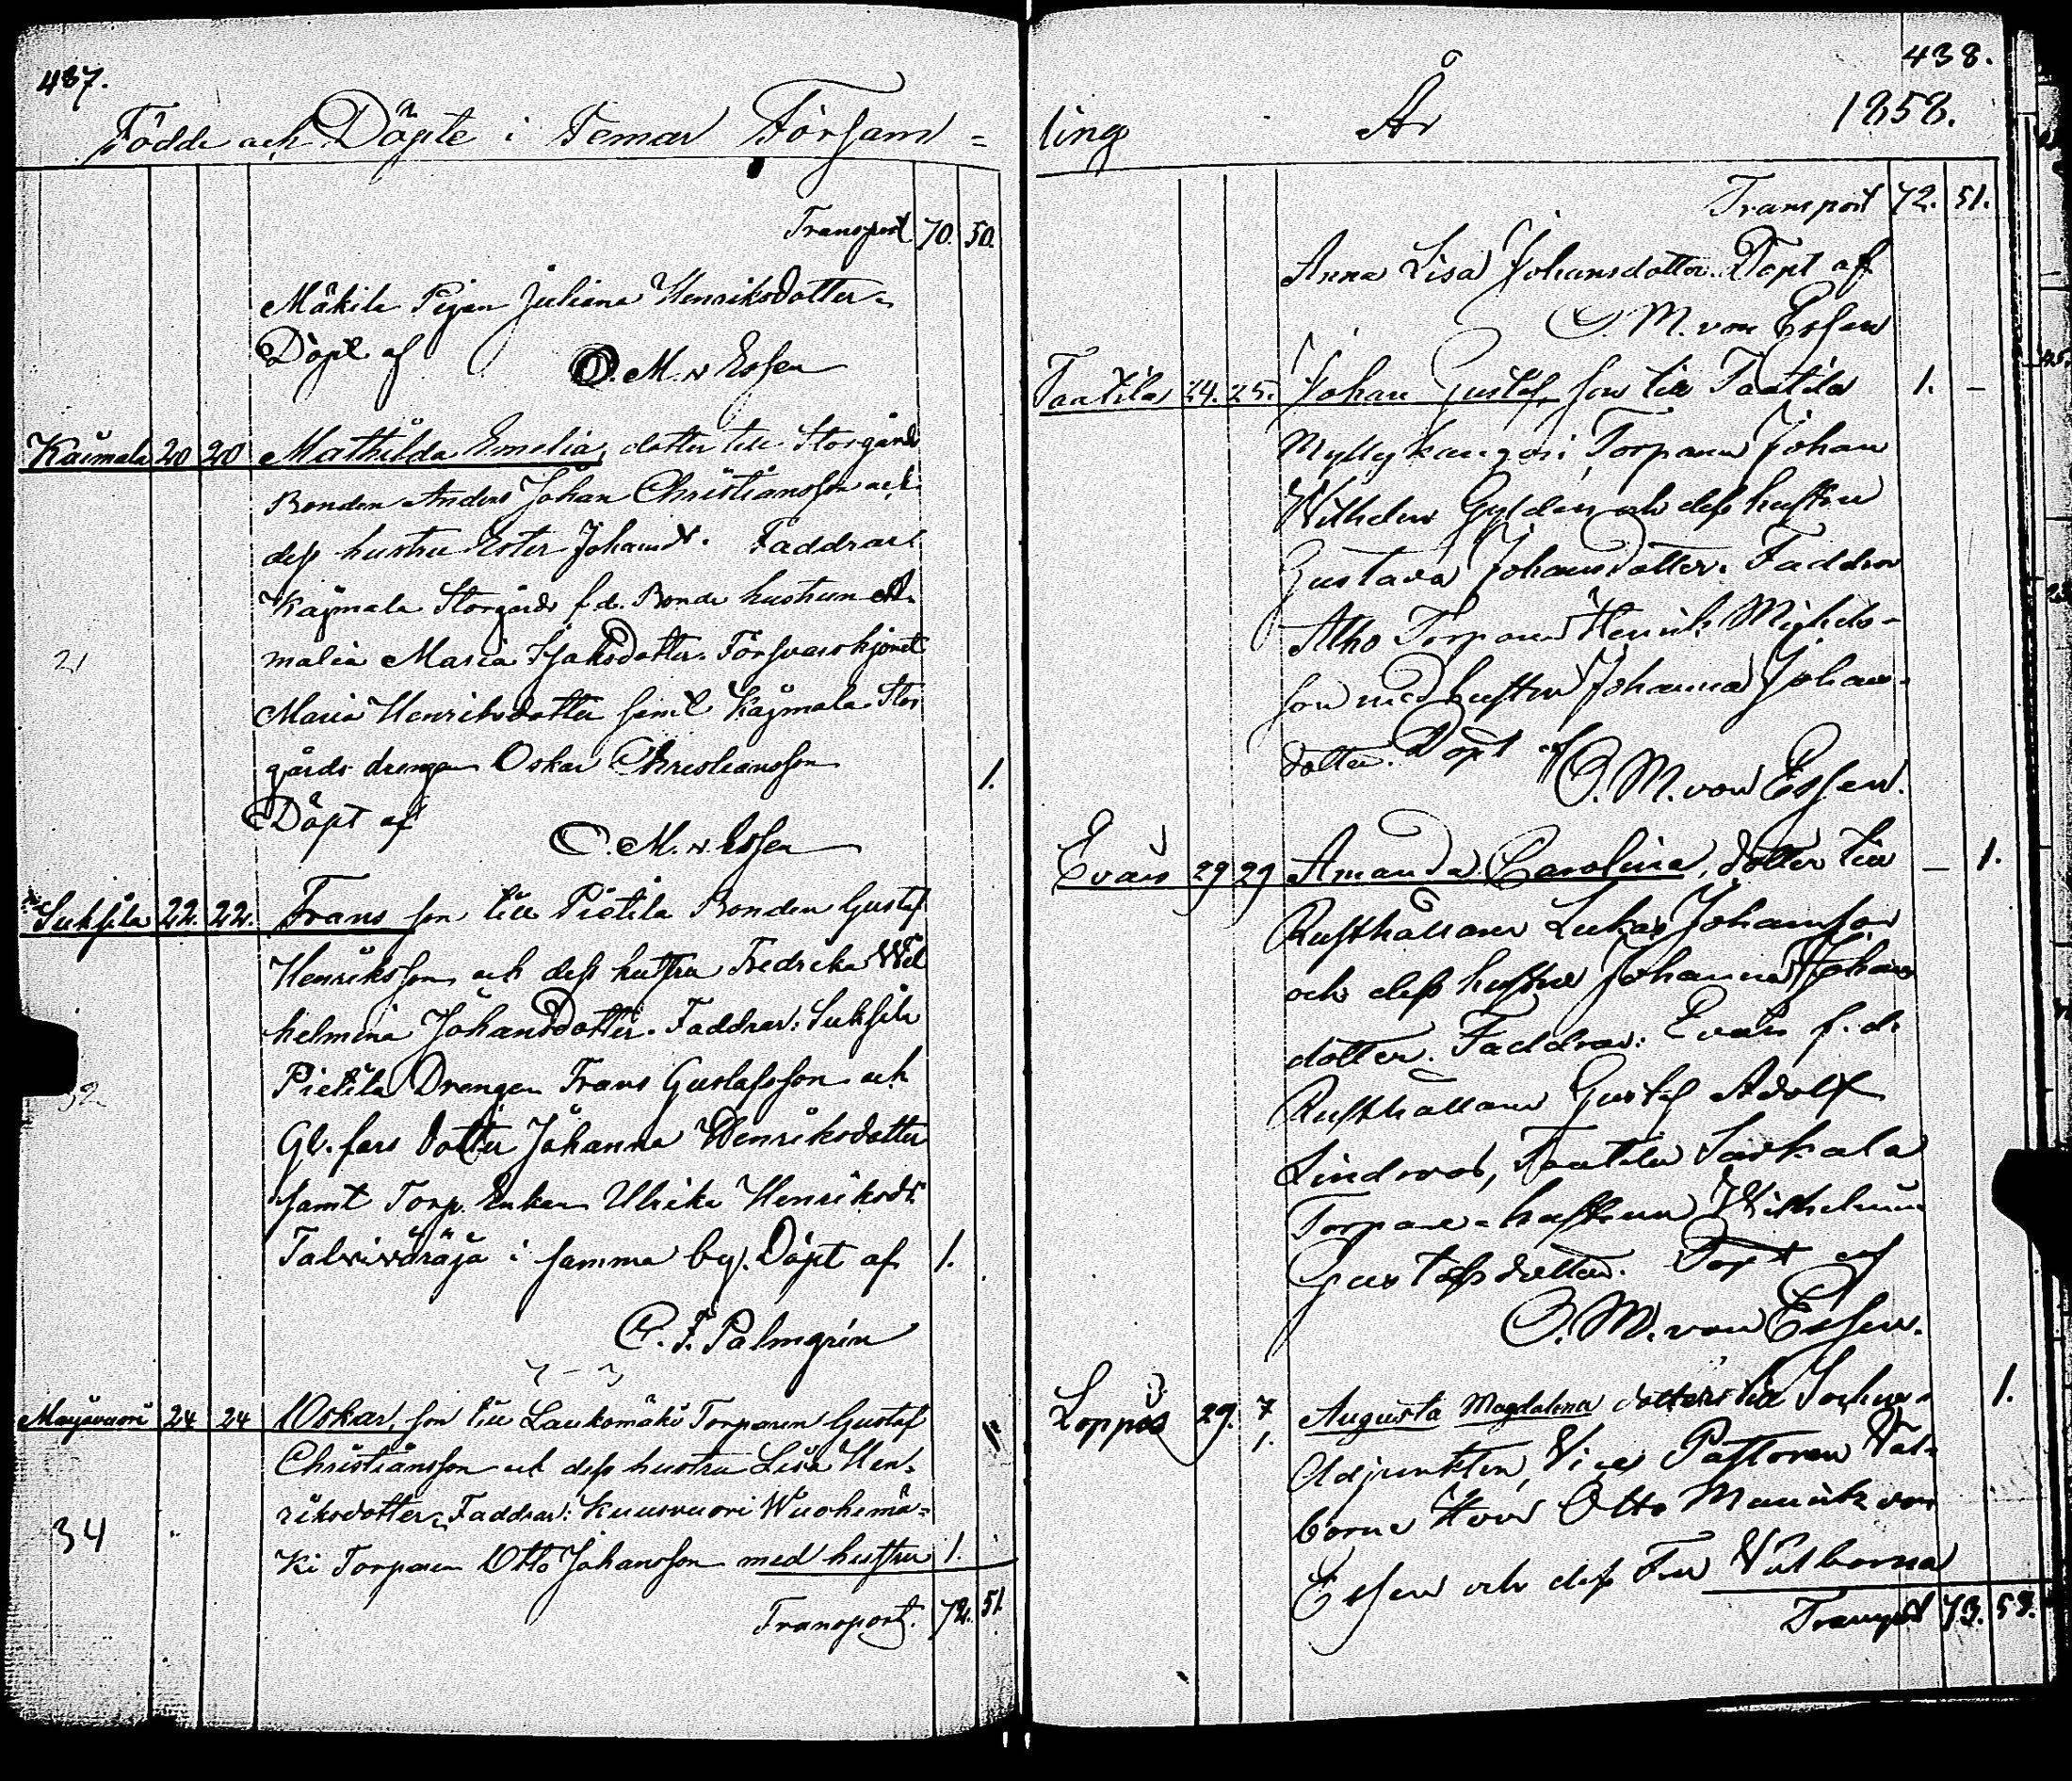 437.
Födde och Döpte i Femar Försam=
Transport 70. 50.
Mäkile Pigan Juliana Henriksdotter.
Döpt af
O. M. v Essen
Kåimala 20 20 Mathilda Emelia, dotter till Storgårds
Bonden Anders Johan Christiansson och
dess hustru Ester Johansd. Faddrar
Kåjmala Storgårds f.d. Bonde hustrun A.
malia Maria Isaksdotter. Försvarskjonet
21
Maria Henriksdotter samt Kåjmala Stor
gårds drengen Oskar Christiansson 1.
Döpt af
O. M. v. Essen
Suksela 22. 22. Frans son till Pietilä Bonden Gustaf
Henriksson och dess hustru Fredrika Wil
helmina Johansdotter. Faddrar: Suksela
Pietilä Drengen Frans Gustafsson och
32
Gl. fars dotter Johanna Henriksdotter
samt Torp. Enkan Ulrika Henriksdr
Talviväräjä i samma by. Döpt af 1.
C. F. Palmgrén
Mäyävuori 24 24 Oskar, son till Laukomäki Torparen Gustaf
Christiansson och dess hustru Lisa Hen-
riksdotter. Faddrar: Kuusvuori Wuohemä=
34
ki Torparen Otto Johansson med hustru 1.
Transport. 72. 51.
438.
ling År 1858.
Transport 72. 51.
Anna Lisa Johansdotter. Döpt af
O. M. von Essen
Taatila 24. 25. Johan Gustaf, son till Taatila 1. –
Myllykangos: Torparen Johan
Wilhelm Gylden och dess hustru
Gustava Johansdotter. Faddrar
Alho Torparen Henrik Michels-
son med hustru Johanna Johans-
dotter. Döpt af
O. M. von Essen.
Evais 29 29 Amanda Carolina, dotter till – 1.
Rusthållaren Lukas Johansson
och dess hustru Johanna Johans
dotter. Faddrar: Evais f. d.
Rusthållaren Gustaf Adolf
Lindroos, Taatila Sarkala
Torpare-hustrun Wilhelmina
Gustafsdotter. Döpt af
O. M. von Essen.
Loppis 29. 7/1. Augusta Magdalena dotter till Sockne- 1.
Adjunkten, Vice Pastoren Väl-
borne Herr Otto Maurik von
Essen och dess Fru Välborna
Transport 73. 53.